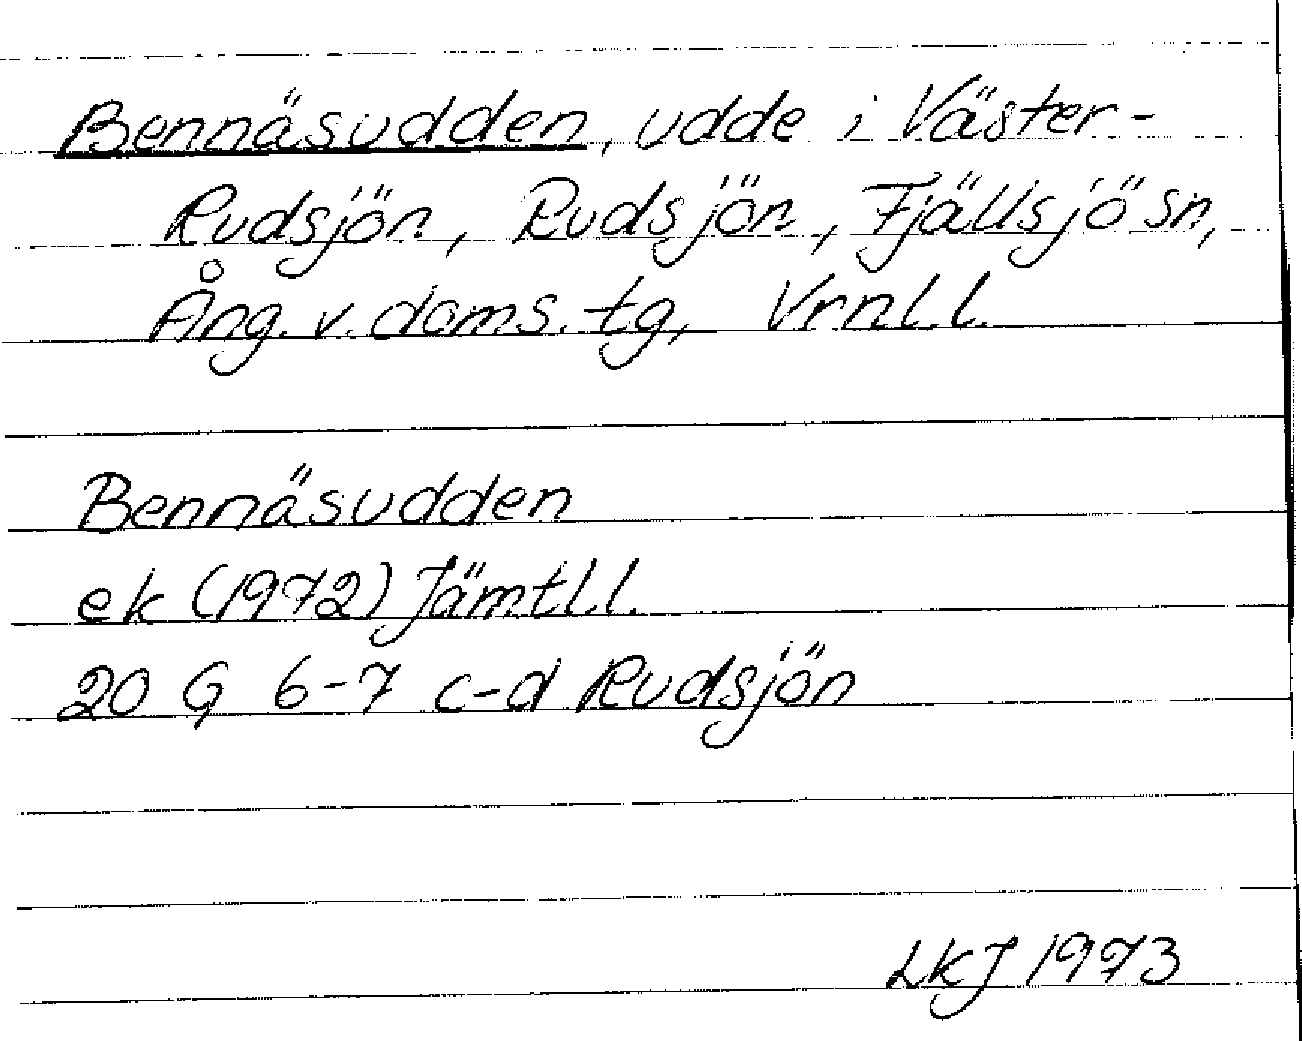 Bennäsudden, udde i Väster-
Rudsjön, Rudsjön, Fjällsjö sn,
Ång. v. doms. tg, Vrnl. l.
Bennäsudden
ek (1972) Jämtl. l.
20 G 6-7 c-d Rudsjön
LKJ 1973